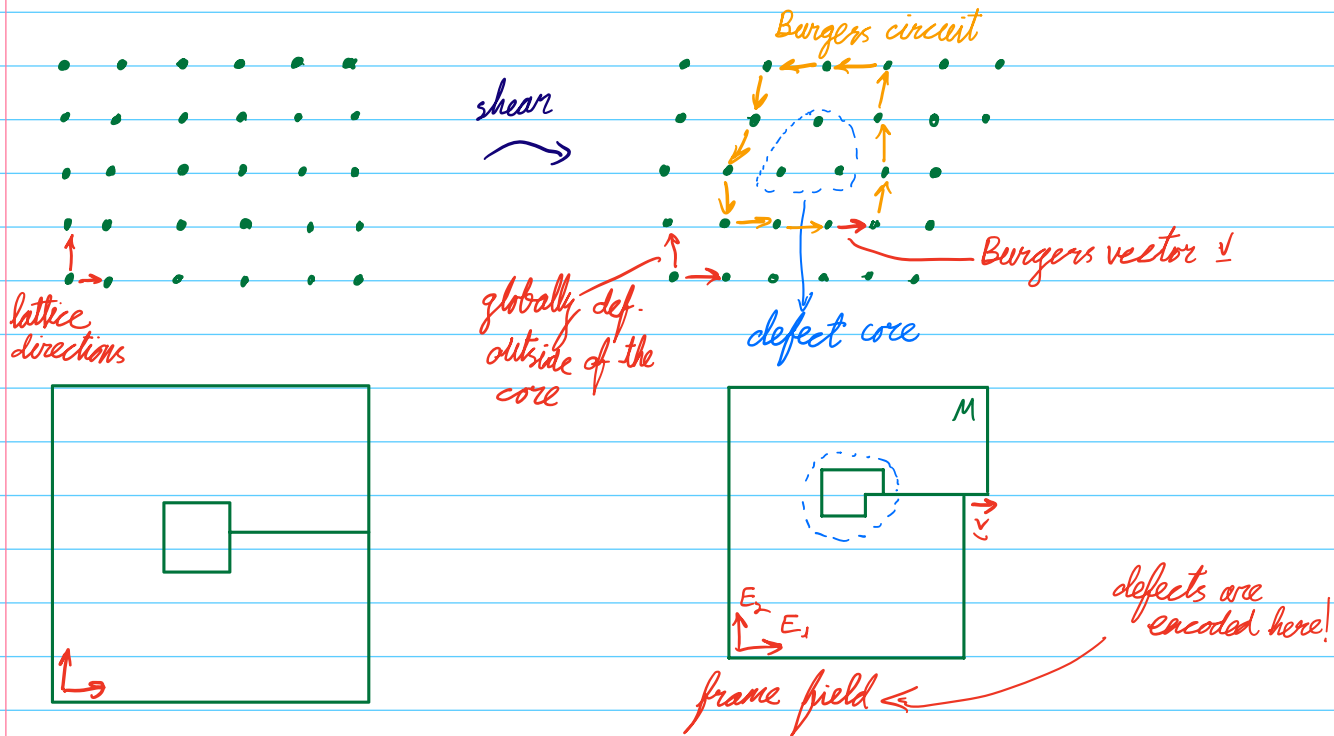 Burgers circuit
shear
Burgers vector v
lattice
directions
globally def.
outside of the
core
defect core
M
v
E₂
E₁
defects are
encoded here!
frame field